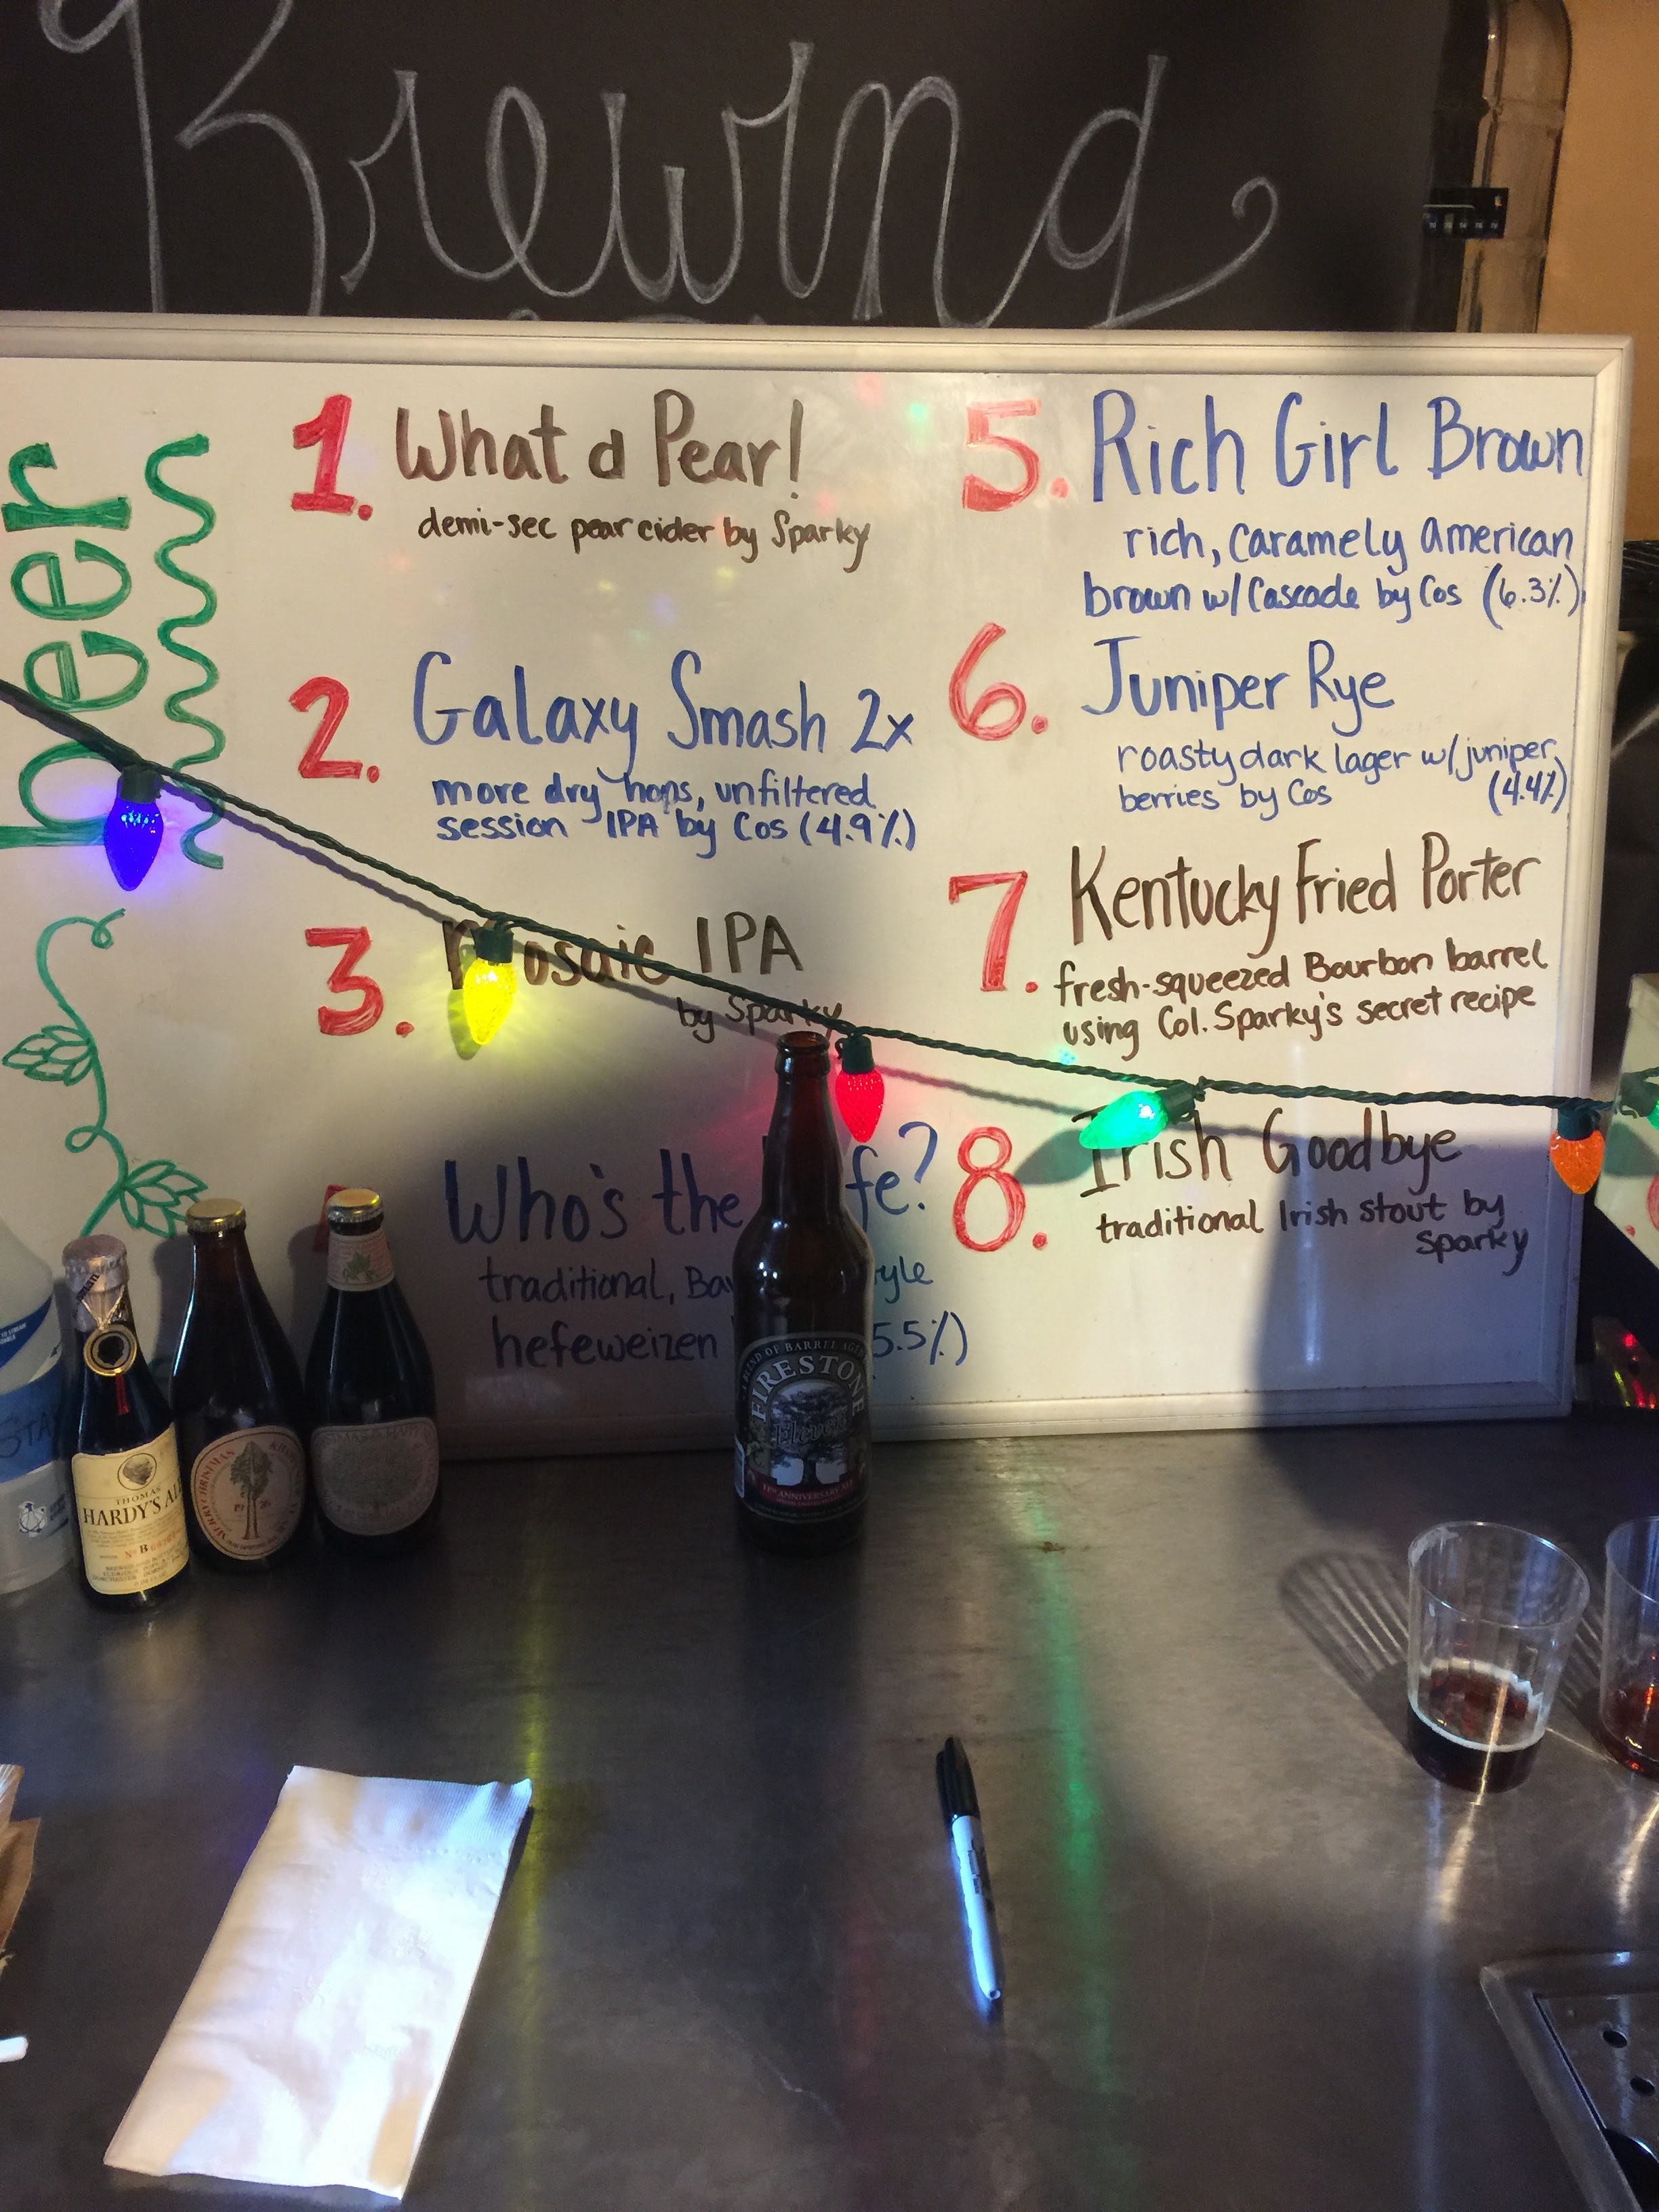 Brewing
beer
1. What a Pear!
demi-sec pear cider by Sparky
2. Galaxy Smash 2x
more dry hops, unfiltered
session IPA by Cos (4.9%)
3. Mosaic IPA
by Sparky
Who's the fe?
traditional, Ba yle
hefeweizen 5.5%)
5. Rich Girl Brown
rich, caramely american
brown w/ Cascade by Cos (6.3%)
6. Juniper Rye
roasty dark lager w/ juniper
berries by Cos (4.4%)
7. Kentucky Fried Porter
fresh-squeezed Bourbon barrel
using Col. Sparky's secret recipe
8. Irish Goodbye
traditional Irish stout by
Sparky
THOMAS
HARDY'S AL
MERRY CHRISTMAS
FIRESTONE
Eleven